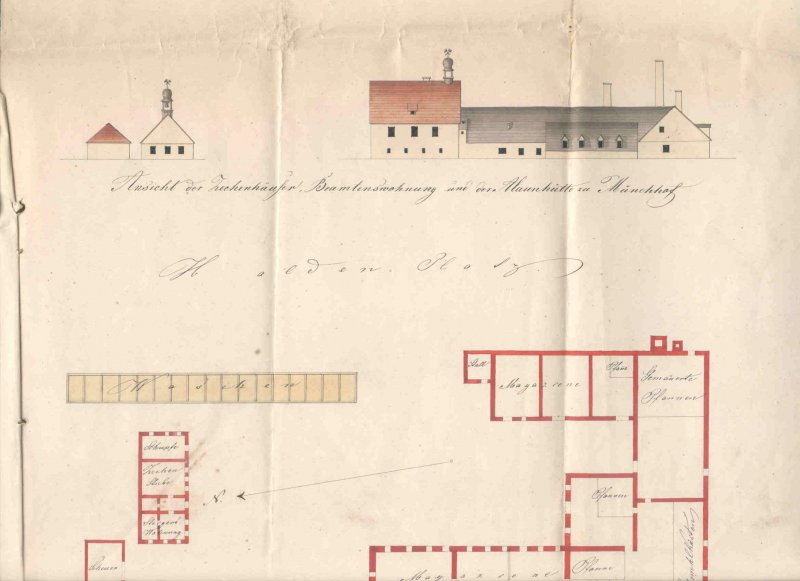 Ansicht der Zechenhäuser, Beamtenswohnung und der Alaunhütte zu Münchhof
Halden Platz.
Stall
Magazeene
Pfane
Gemauerte
Pfannen
Waschen
Schupfe
Zechen
Stube
N.
Steigers
Wohnung
Pfannen
Scheuer
Magazeene
Pfanne